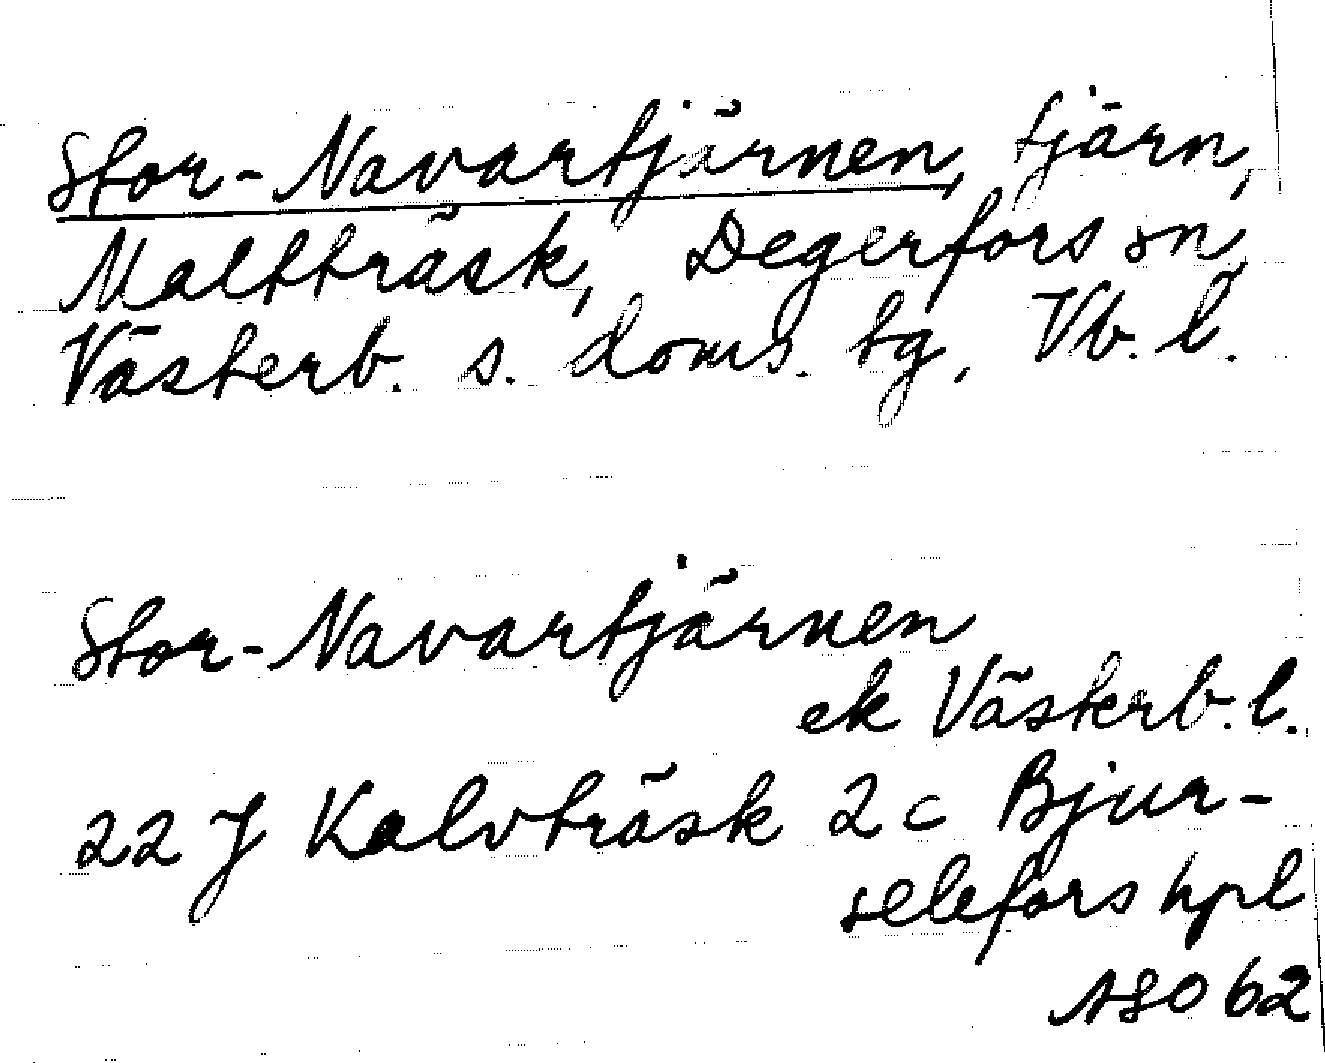 Stor-Navartjärnen, tjärn,
Maltträsk, Degerfors sn,
Västerb. s. doms. tg, Vb. l.
Stor-Navartjärnen
ek Västerb. l.
22 J Kalvträsk 2 c Bjur-
selefors hpl
ASO 62